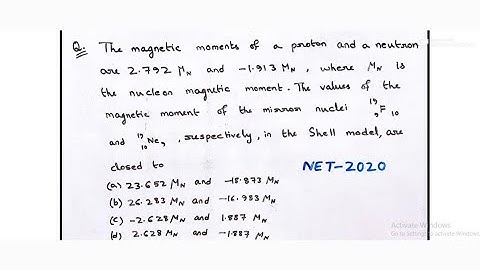 Q. The magnetic moments of a proton and a neutron
are 2.792 μN and -1.913 μN , where μN is
the nucleon magnetic moment. The values of the
magnetic moment of the mirror nuclei ¹⁹₉F₁₀
and ¹⁹₁₀Ne₉ , respectively, in the Shell model, are
closed to
NET-2020
(a) 23.652 μN and -18.873 μN
(b) 26.283 μN and -16.983 μN
(c) -2.628 μN and 1.887 μN
(d) 2.628 μN and -1.887 μN
Activate Windows
Go to Settings to activate Windows.